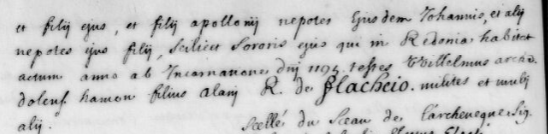 et filij ejus, et filij apollonij nepotes Ejusdem Johannis, et alij
nepotes ejus filij, scilicet sororis ejus qui in Redonia habitet
actum anno ab Incarnatione dnj 1194. testes Willelmus archid.
dolens. hamon filius alanj R. de flacheio. milites et multj
alij.
Scellé du Sceau de L'archeveque Sig.